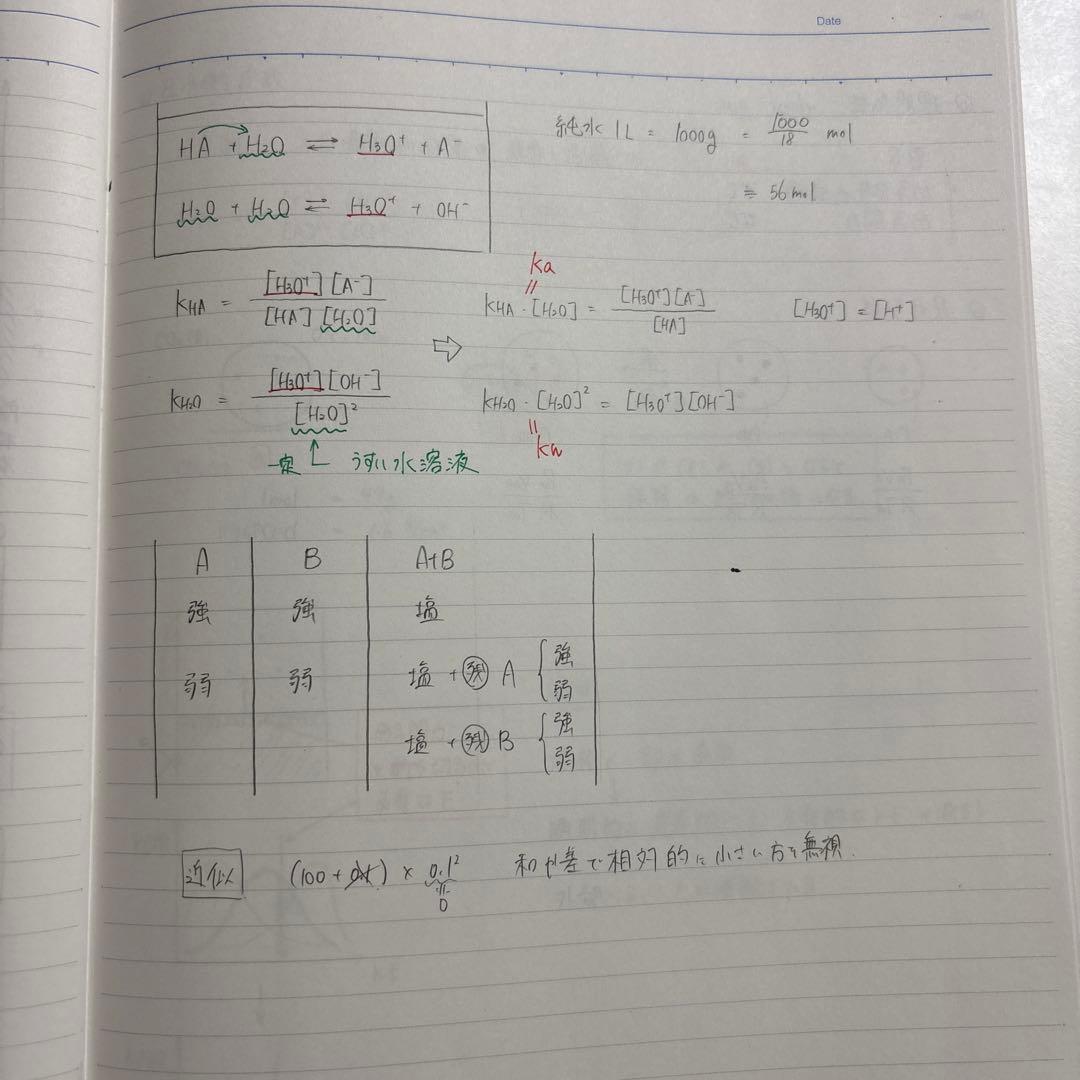 Date
HA + H₂O ⇌ H₃O⁺ + A⁻
H₂O + H₂O ⇌ H₃O⁺ + OH⁻
純水 1L = 1000g = 1000/18 mol
≒ 56 mol
KHA = [H₃O⁺][A⁻] / [HA][H₂O]
ka
=
KHA・[H₂O] = [H₃O⁺][A⁻] / [HA]
[H₃O⁺] = [H⁺]
⇨
KH₂O = [H₃O⁺][OH⁻] / [H₂O]²
KH₂O・[H₂O]² = [H₃O⁺][OH⁻]
=
kw
一定 うすい水溶液
A B A+B
強 強 塩
弱 弱 塩 + 残 A { 強 弱
塩 + 残 B { 強 弱
近似 (100 + 0.1) × 0.1² 和や差で相対的に小さい方を無視.
0